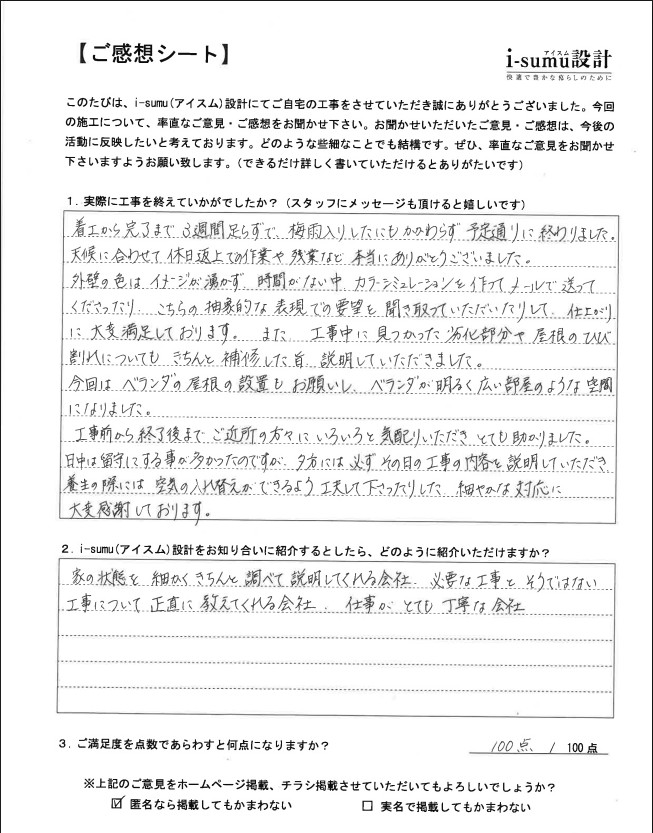 【ご感想シート】
アイスム
i-sumu設計
快適で豊かな暮らしのために
このたびは、i-sumu(アイスム)設計にてご自宅の工事をさせていただき誠にありがとうございました。今回
の施工について、率直なご意見・ご感想をお聞かせ下さい。お聞かせいただいたご意見・ご感想は、今後の
活動に反映したいと考えております。どのような些細なことでも結構です。ぜひ、率直なご意見をお聞かせ
下さいますようお願い致します。(できるだけ詳しく書いていただけるとありがたいです)
1. 実際に工事を終えていかがでしたか?(スタッフにメッセージも頂けると嬉しいです)
着工から完了まで 3週間足らずで、梅雨入りしたにもかかわらず 予定通りに終わりました。
天候に合わせて 休日返上での作業や 残業など 本当にありがとうございました。
外壁の色は イメージが湧かず 時間がない中 カラーシミュレーションを作って メールで送って
くださったり、こちらの抽象的な表現での要望を 聞き取っていただいたりして、仕上がり
に 大変満足しております。 また、工事中に見つかった 劣化部分や 屋根のひび
割れについても きちんと 補修した旨 説明していただきました。
今回は ベランダの屋根の設置も お願いし、ベランダが明るく広い部屋のような空間
になりました。
工事前から終了後まで ご近所の方々に いろいろと気配りいただき とても助かりました。
日中は留守にする事が多かったのですが、夕方には必ず その日の工事の内容を説明していただき
養生の際には 空気の入れ替えができるよう 工夫して下さったりした 細やかな対応に
大変感謝しております。
2. i-sumu(アイスム)設計をお知り合いに紹介するとしたら、どのように紹介いただけますか?
家の状態を 細かくきちんと 調べて 説明してくれる会社 必要な工事と そうではない
工事について 正直に 教えてくれる会社、 仕事が とても 丁寧な会社
3. ご満足度を点数であらわすと何点になりますか? 100点 / 100 点
※上記のご意見をホームページ掲載、チラシ掲載させていただいてもよろしいでしょうか?
☑ 匿名なら掲載してもかまわない □ 実名で掲載してもかまわない